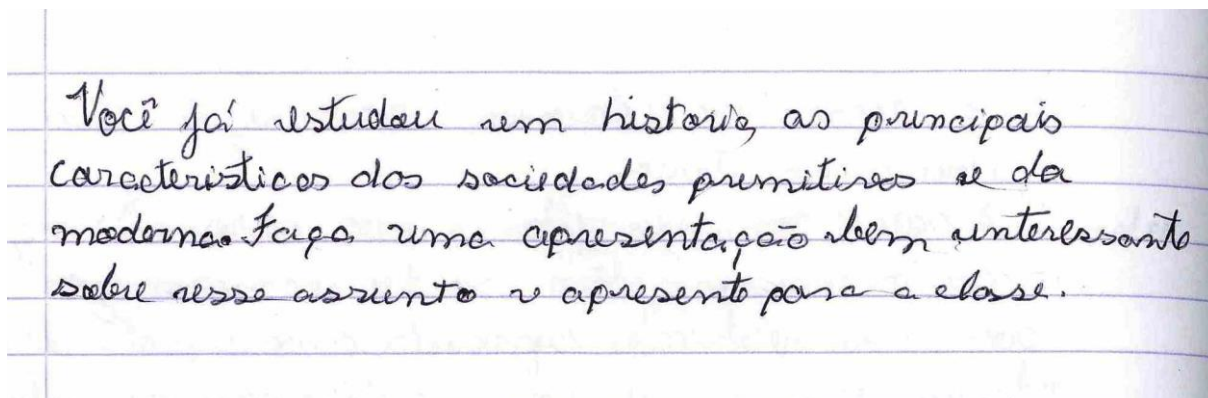 Você já estudou em historia, as principais
caracteristicas das sociedades primitivas e da
moderna. Faça uma apresentação bem interessante
sobre esse assunto e apresente para a classe.